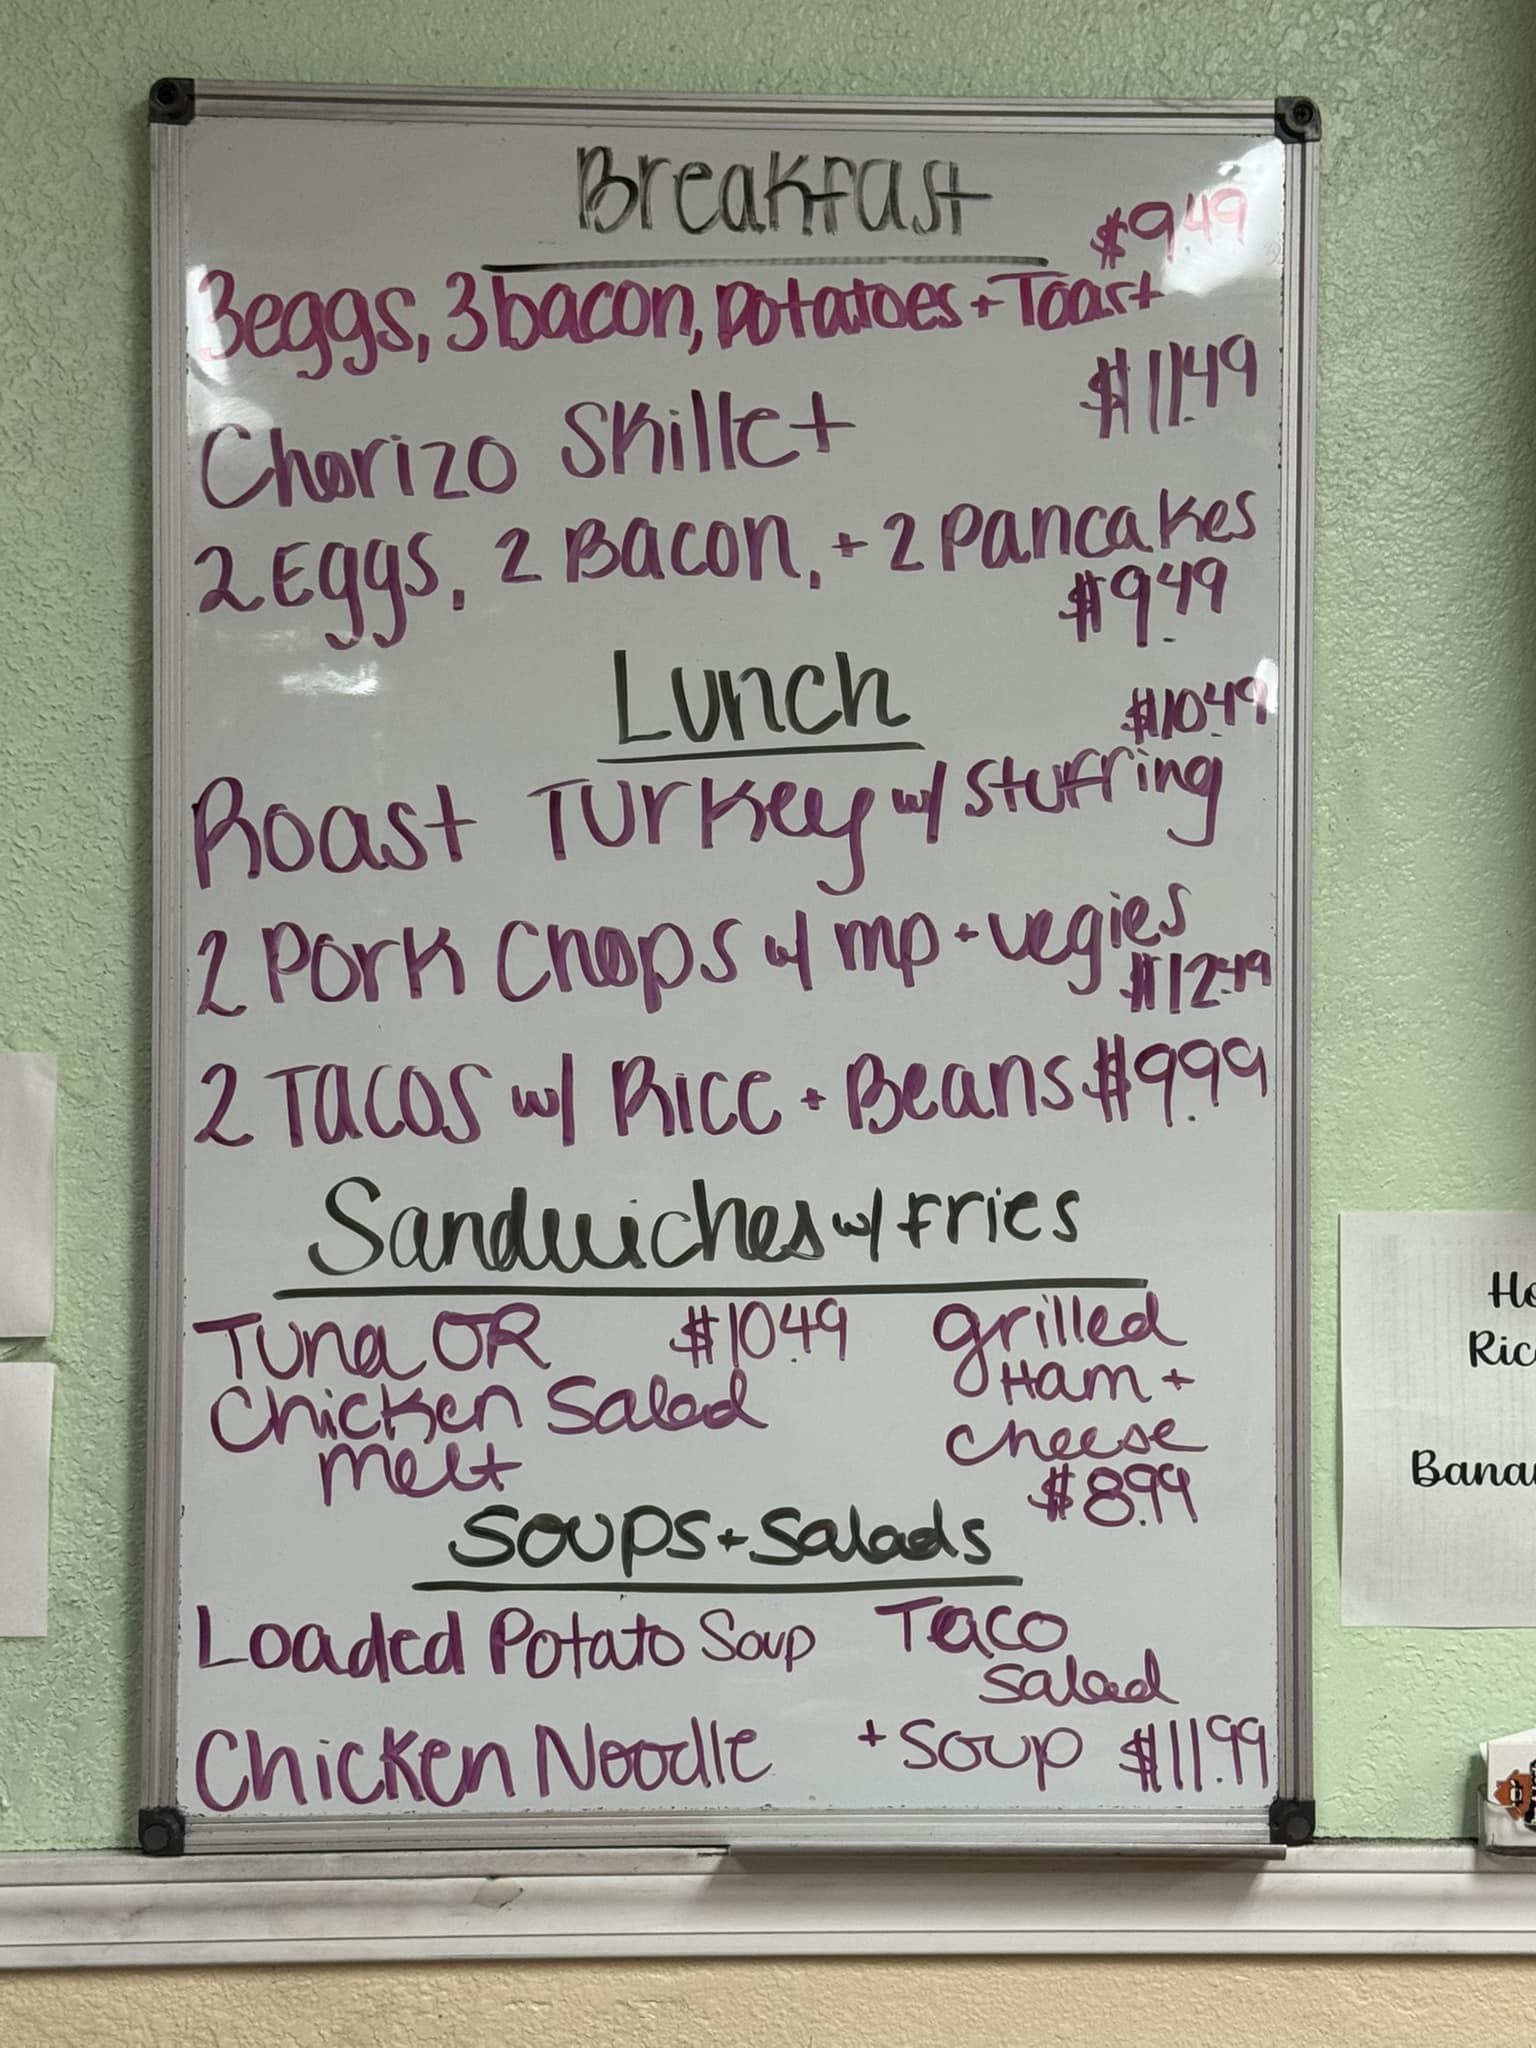 Breakfast
$9.49
3 eggs, 3 bacon, potatoes + Toast
$11.49
Chorizo Skillet
2 Eggs, 2 Bacon, + 2 Pancakes
$9.49
Lunch
$10.49
Roast Turkey w/ stuffing
2 Pork Chops w/ mp + vegies
$12.49
2 Tacos w/ Rice + Beans $9.99
Sandwiches w/ Fries
Tuna OR $10.49
Chicken Salad
melt
grilled
Ham +
cheese
$8.99
Soups + Salads
Loaded Potato Soup
Chicken Noodle
Taco
Salad
+ Soup $11.99